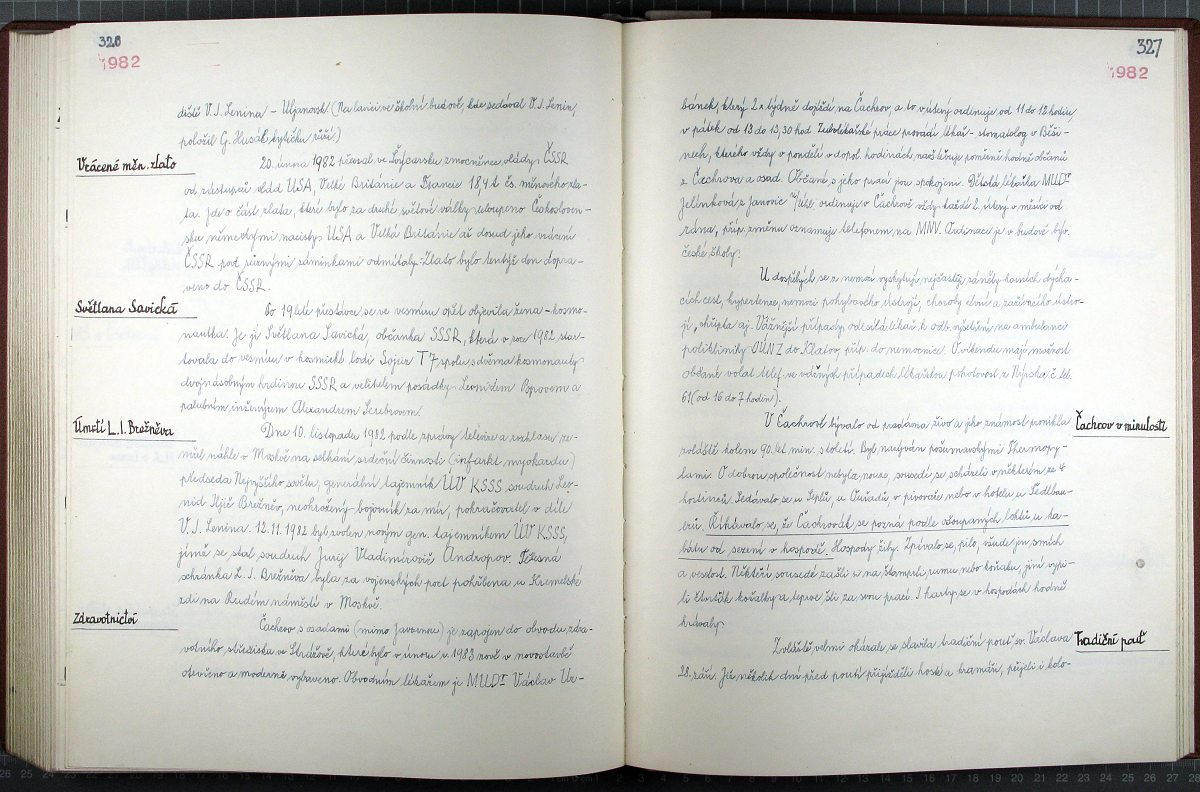 326
1982
diště V. I. Lenina - Uljanovsk (Na lavici ve školní budově, kde sedával V. I. Lenin,
položil G. Husák kytičku růží)
Vrácené měn. zlato
20. února 1982 převzal ve Švýcarsku zmocněnec vlády ČSSR
od zástupců vlád USA, Velké Británie a Francie 18,4 t čs. měnového zla-
ta. Jde o část zlata, které bylo za druhé světové války uloupeno Českosloven-
sku německými nacisty. USA a Velká Británie až dosud jeho vrácení
ČSSR pod různými záminkami odmítaly. Zlato bylo tentýž den dopra-
veno do ČSSR.
Světlana Savická
Po 19leté přestávce se ve vesmíru opět objevila žena - kosmo-
nautka. Je jí Světlana Savická, občanka SSSR, která v roce 1982 star-
tovala do vesmíru v kosmické lodi Sojuz T7 spolu s dvěma kosmonauty
dvojnásobným hrdinou SSSR a velitelem posádky Leonidem Popovem a
palubním inženýrem Alexandrem Serebrovem.
Úmrtí L. I. Brežněva
Dne 10. listopadu 1982 podle zprávy televize a rozhlasu ze-
mřel náhle v Moskvě na selhání srdeční činnosti (infarkt myokardu)
předseda Nejvyššího sovětu, generální tajemník ÚV KSSS soudruh Leo-
nid Iljič Brežněv, neohrožený bojovník za mír, pokračovatel v díle
V. I. Lenina. 12.11.1982 byl zvolen novým gen. tajemníkem ÚV KSSS,
jímž se stal soudruh Jurij Vladimirovič Andropov. Tělesná
schránka L. I. Brežněva byla za vojenských poct pohřbena u Kremelské
zdi na Rudém náměstí v Moskvě.
Zdravotnictví
Čachrov s osadami (mimo Javornou) je zapojen do obvodu zdra-
votního střediska ve Strážově, které bylo v únoru 1983 nově v novostavbě
otevřeno a moderně vybaveno. Obvodním lékařem je MUDr Václav Ur-
327
1982
bánek, který 2x týdně dojíždí na Čachrov, a to v úterý ordinuje od 11 do 12 hodin,
v pátek od 13 do 13,30 hod. Zubolékařské práce provádí lékař - stomatolog v Běši-
nech, kterého vždy v pondělí v dopol. hodinách navštěvuje poměrně hodně občanů
z Čachrova a osad. Občané s jeho prací jsou spokojeni. Dětská lékařka MUDr
Jelínková z Janovic n/Úhl. ordinuje v Čachrově vždy každé 2. úterý v měsíci od
rána, příp. změnu oznamuje telefonem na MNV. Ordinace je v budově býv.
české školy.
U dospělých se z nemocí vyskytují nejčastěji záněty horních dýcha-
cích cest, hypertenze, nemoci pohybového ústrojí, choroby cévní a zažívacího ústro-
jí, chřipka aj. Vážnější případy odesílá lékař k odb. vyšetření na ambulanci
polikliniky OÚNZ do Klatov, příp. do nemocnice. O víkendu mají možnost
občané volat telef. ve vážných případech lékařskou pohotovost z Nýrska č. tel.
61 (od 16 do 7 hodin).
Čachrov v minulosti
V Čachrově bývalo od pradávna živo a jeho známost pronikla
zvláště kolem 90. let min. století. Byl nazýván pošumavskými Thermopy-
lami. O dobrou společnost nebyla nouze, sousedé se scházeli v některém ze 4
hostinců. Sedávalo se u Seplů, u Ouřadů, v pivovaře nebo v hotelu u Sedlbau-
erů. Říkávalo se, že Čachrovák se pozná podle ošoupaných loktů u ka-
bátu od sezení v hospodě. Hospody žily. Zpívalo se, pilo, všude jen smích
a veselost. Někteří sousedé zašli si na štamprli rumu nebo koňaku, jiní vypi-
li čtvrťák kořalky a teprve šli za svou prací. I karty se v hospodách hodně
hrávaly.
Tradiční pouť
Zvláště velmi okázale se slavila tradiční pouť sv. Václava
28. září. Již několik dní před poutí přijížděli hosté a kramáři, přijeli i kolo-